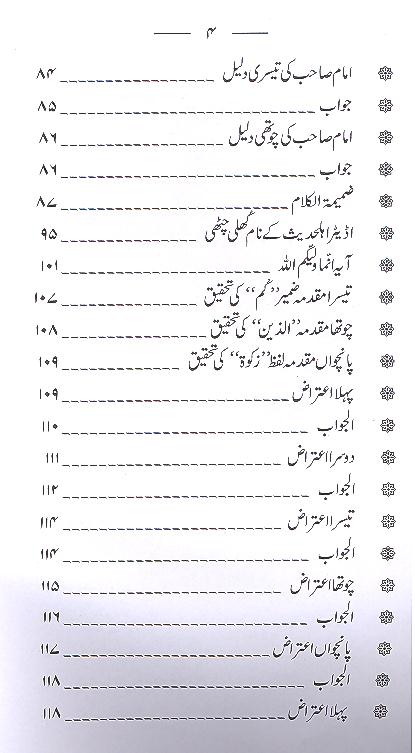 ۴
امام صاحب کی تیسری دلیل ۸۴
جواب ۸۵
امام صاحب کی چوتھی دلیل ۸۶
جواب ۸۶
ضمیمۃ الکلام ۸۷
اڈیٹر اہلحدیث کے نام کُھلی چٹھی ۹۵
آیہ انّما ولیّکم اللہ ۱۰۱
تیسرا مقدمہ ضمیر ”کُم“ کی تحقیق ۱۰۷
چوتھا مقدمہ ”الذین“ کی تحقیق ۱۰۸
پانچواں مقدمہ لفظ ”زکوۃ“ کی تحقیق ۱۰۹
پہلا اعتراض ۱۰۹
الجواب ۱۱۰
دوسرا اعتراض ۱۱۱
الجواب ۱۱۲
تیسرا اعتراض ۱۱۴
الجواب ۱۱۴
چوتھا اعتراض ۱۱۵
الجواب ۱۱۶
پانچواں اعتراض ۱۱۷
الجواب ۱۱۸
پہلا اعتراض ۱۱۸